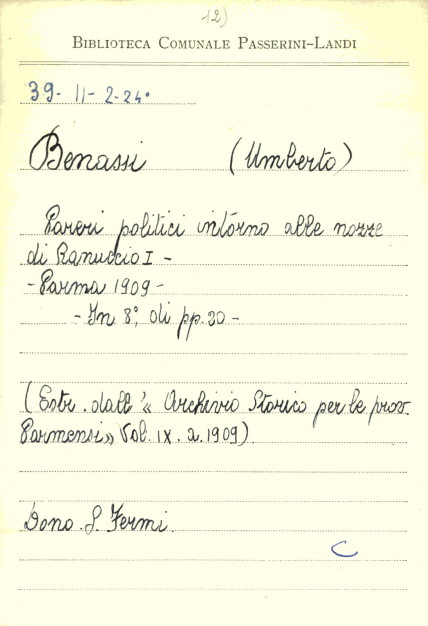 12)
BIBLIOTECA COMUNALE PASSERINI-LANDI
39- II- 2-24°
Benassi (Umberto)
Pareri politici intorno alle nozze
di Ranuccio I -
- Parma 1909 -
- In 8°, di pp. 20 -
(Estr. dall'« Archivio Storico per le prov.
Parmensi» Vol. IX. a. 1909).
Dono S. Fermi.
C